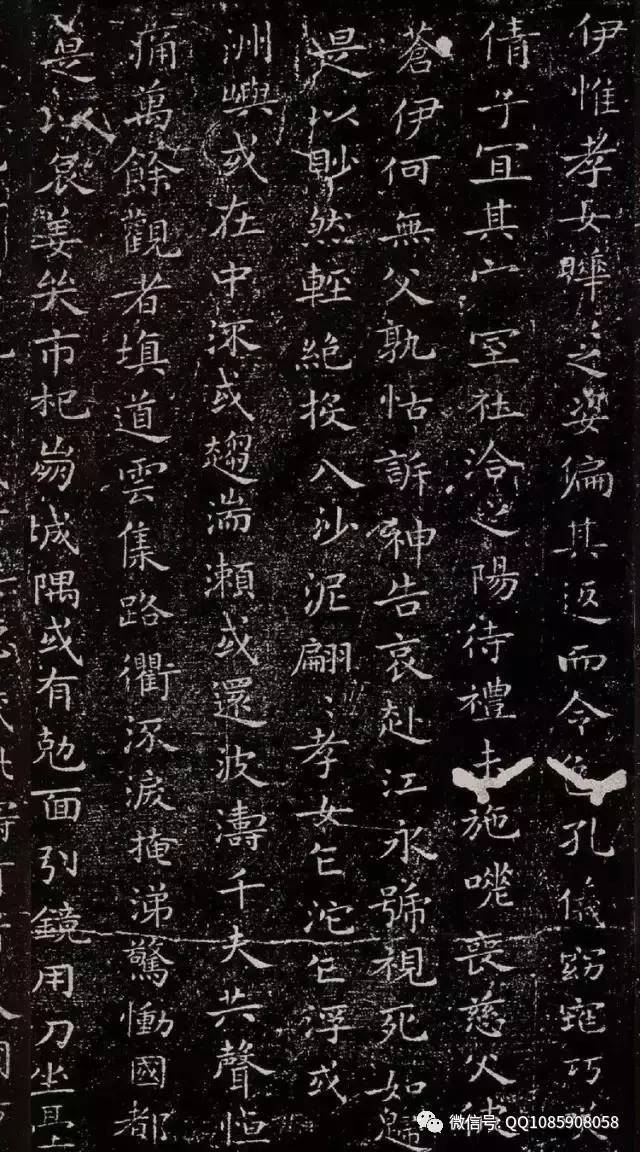 伊惟孝女曄〻之姿偏其返而令色孔儀窈窕巧笑
倩兮宜其家室在洽之陽待禮未施嗟喪慈父彼
蒼伊何無父孰怙訴神告哀赴江永號視死如歸
是以眇然輕絕投入沙泥翩〻孝女乍沈乍浮或
洲嶼或在中流或趨湍瀨或還波濤千夫共聲悼
痛萬餘觀者填道雲集路衢流淚掩涕驚慟國都
是以哀姜哭市杞崩城隅或有勊面引鏡用刀坐臺
微信号: QQ1085908058